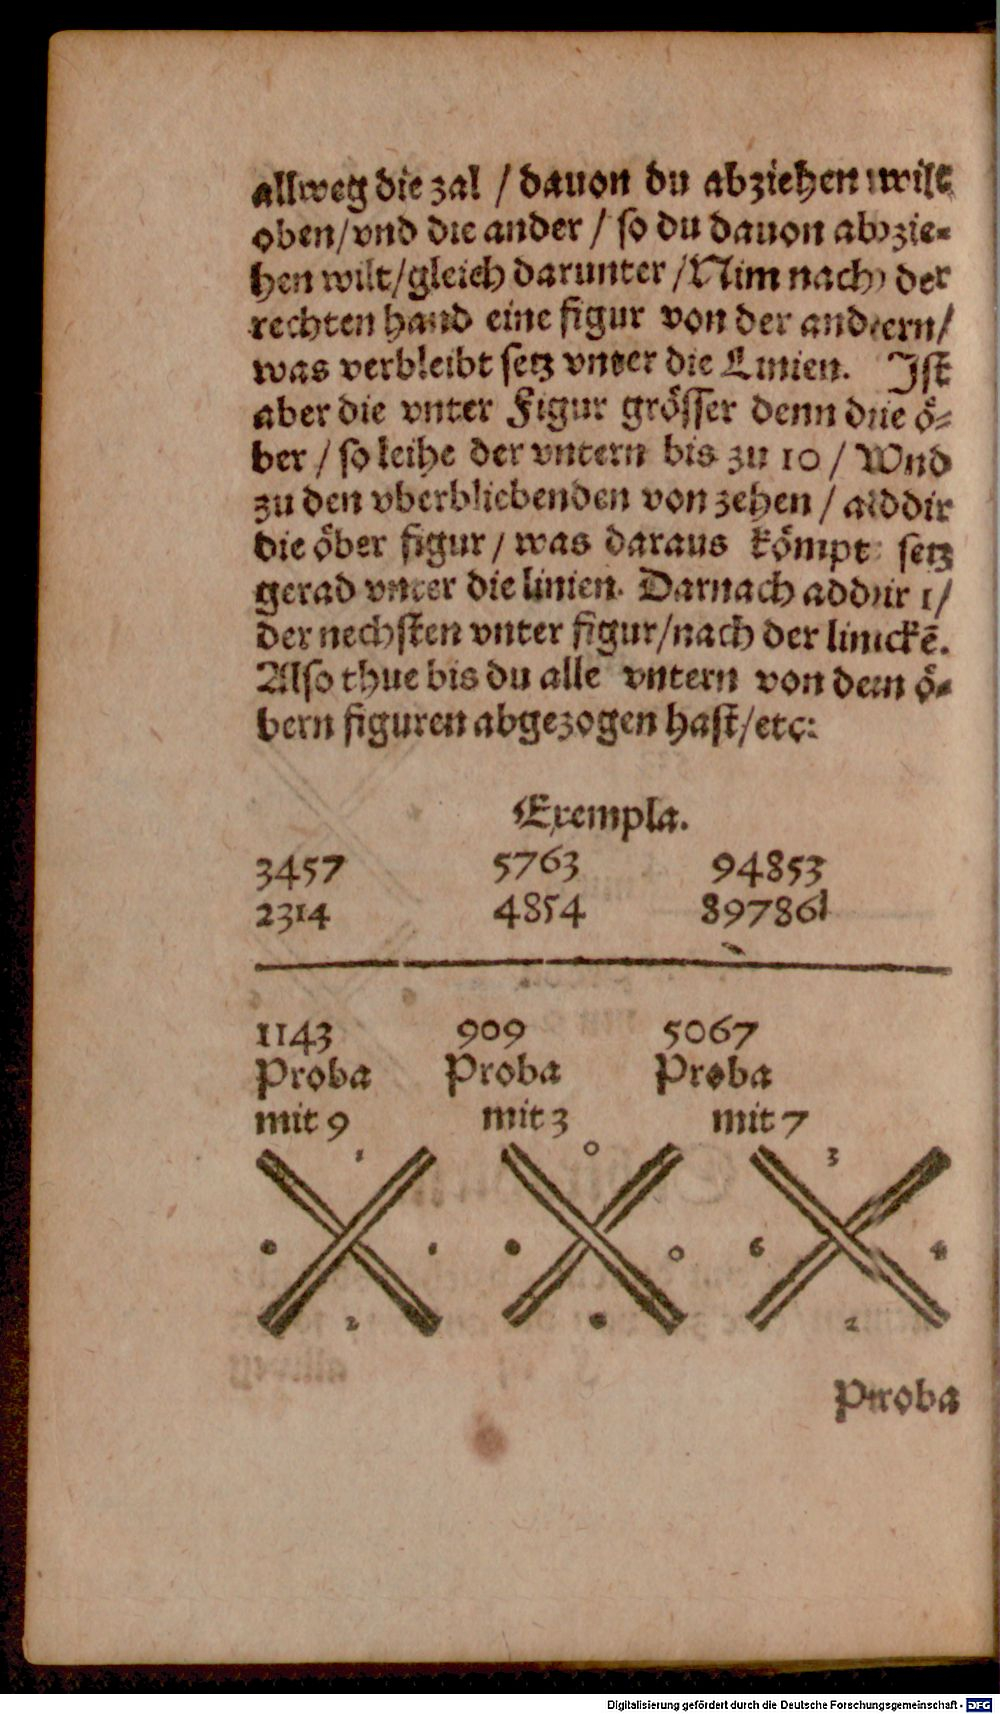 allweg die zal / dauon du abziehen wilt
oben/vnd die ander / so du dauon abzie-
hen wilt/gleich darunter /Nim nach der
rechten hand eine figur von der andern/
was verbleibt setz vnter die Linien. Ist
aber die vnter Figur grösser denn die ö-
ber / so leihe der vntern bis zu 10 / Wnd
zu den vberbliebenden von zehen / addir
die öber figur / was daraus kömpt setz
gerad vnter die linien. Darnach addir 1/
der nechsten vnter figur/nach der linckē.
Also thue bis du alle vntern von dem ö-
bern figuren abgezogen hast/etc:
Exempla.
3457 5763 94853
2314 4854 89786
1143 909 5067
Proba Proba Proba
mit 9 mit 3 mit 7
1 0 3
0 1 0 0 6 4
2 0 2
Proba
Digitalisierung gefördert durch die Deutsche Forschungsgemeinschaft - DFG